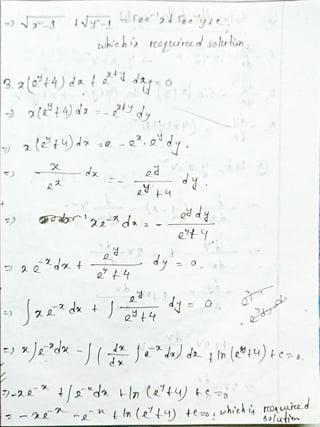 ⇒ √x²-1 + √y²-1 = sec⁻¹x + sec⁻¹y + c
which is requireced solution.
3. x(e^y+4) dx + e^(x+y) dy = 0
⇒ x(e^y+4) dx = -e^(x+y) dy
⇒ x(e^y+4) dx = - e^x. e^y dy.
⇒ x/e^x dx = - e^y/(e^y+4) dy.
⇒ xe^-x dx = - e^y dy/(e^y+4)
⇒ x e^-x dx + e^y/(e^y+4) dy = 0.
⇒ ∫ x e^-x dx + ∫ e^y/(e^y+4) dy = 0
⇒ x∫e^-x dx - ∫(dx/dx ∫e^-x dx) dx + ln(e^y+4) + c = 0.
⇒ -xe^-x + ∫e^-x dx + ln(e^y+4) + c = 0
⇒ -xe^-x - e^-x + ln(e^y+4) + c = 0, which is requireced solution